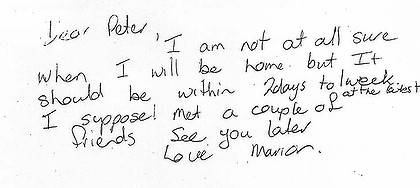 Dear Peter,
I am not at all sure
when I will be home but It
should be within 2days to 1week
at the latest
I suppose I met a couple of
friends See you later
Love Marion.